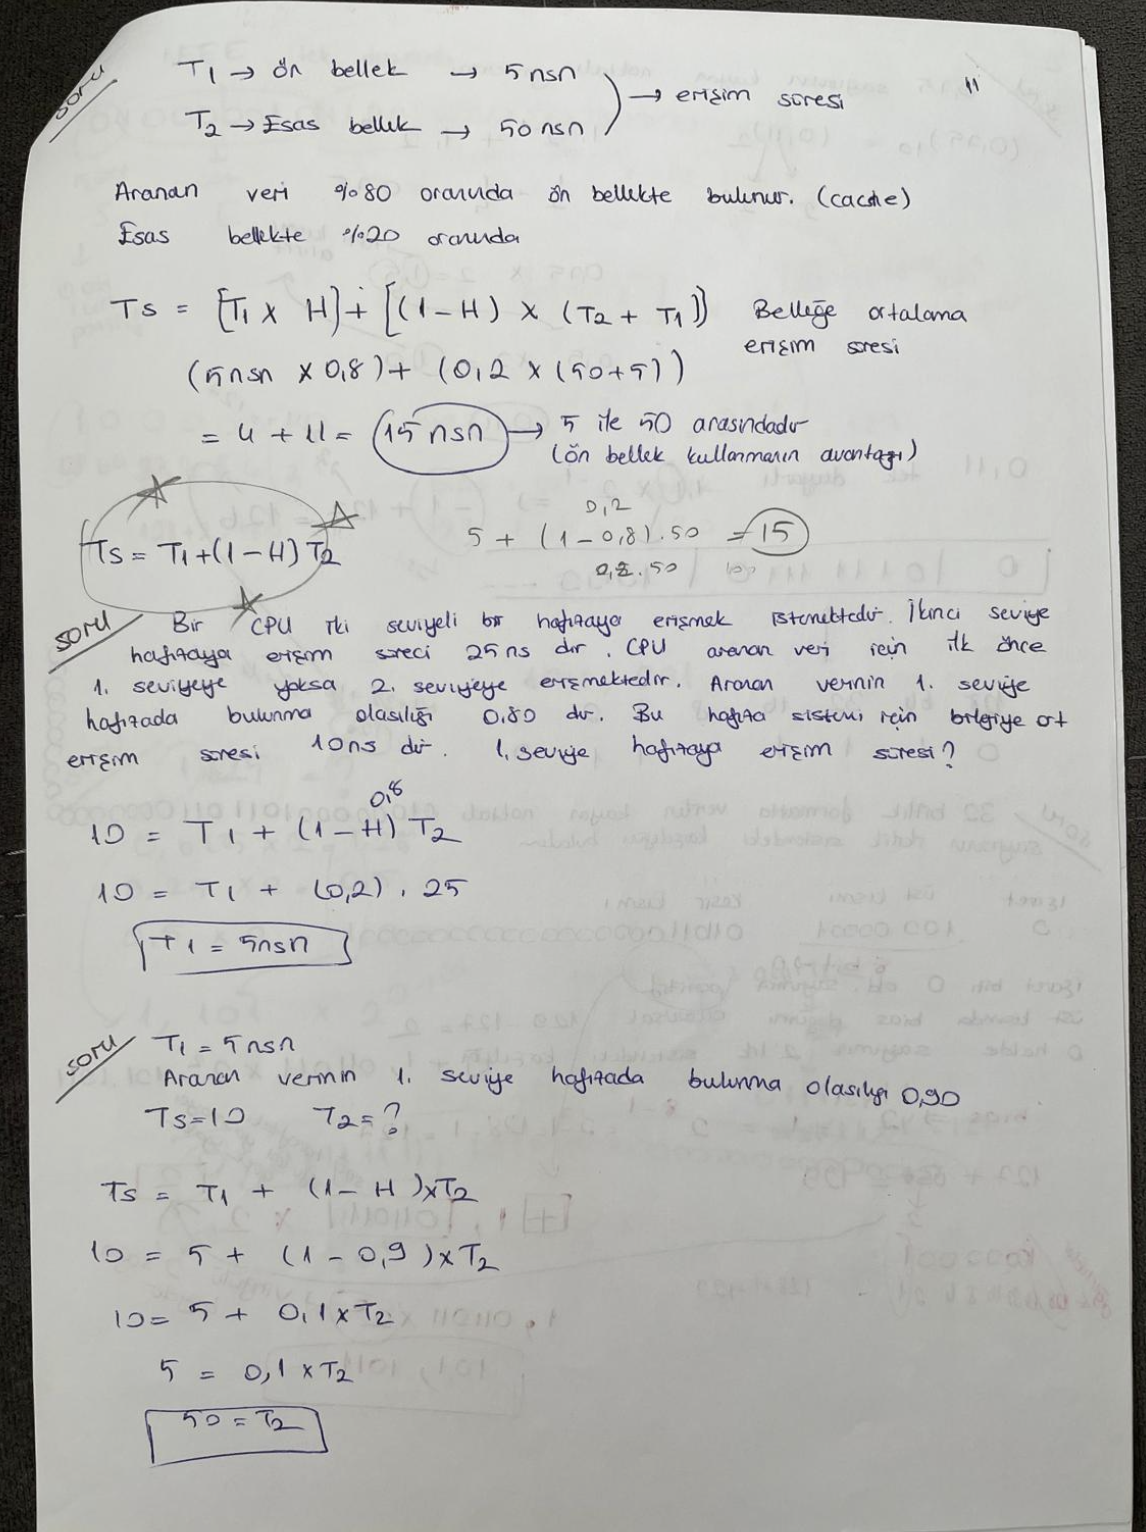 soru
T1 → ön bellek → 5 nsn
T2 → Esas bellek → 50 nsn
→ erişim süresi
11
Aranan veri %80 oranında ön bellekte bulunur. (cache)
Esas bellekte %20 oranında
Ts = [T1 x H] + [(1-H) x (T2 + T1)] Belleğe ortalama
erişim süresi
(5nsn x 0,8) + (0,2 x (50+5))
= 4 + 11 = 15 nsn → 5 ile 50 arasındadır
(ön bellek kullanmanın avantajı)
Ts = T1+(1-H) T2
0,2
5 + (1-0,8).50 = 15
0,2.50
soru Bir CPU iki seviyeli bir hafızaya erişmek istemektedir. İkinci seviye
hafızaya erişim süreci 25ns dir. CPU aranan veri için ilk önce
1. seviyeye yoksa 2. seviyeye erişmektedir. Aranan verinin 1. seviye
hafızada bulunma olasılığı 0.80 dir. Bu hafıza sistemi için bilgiye ort
erişim süresi 10ns dir. 1. seviye hafızaya erişim süresi?
0,8
10 = T1 + (1-H) T2
10 = T1 + (0,2) . 25
T1 = 5nsn
soru
T1 = 5 nsn
Aranan verinin 1. seviye hafızada bulunma olasılığı 0,90
Ts=10 T2=?
Ts = T1 + (1-H)xT2
10 = 5 + (1-0,9)xT2
10= 5 + 0,1xT2
5 = 0,1 xT2
50 = T2